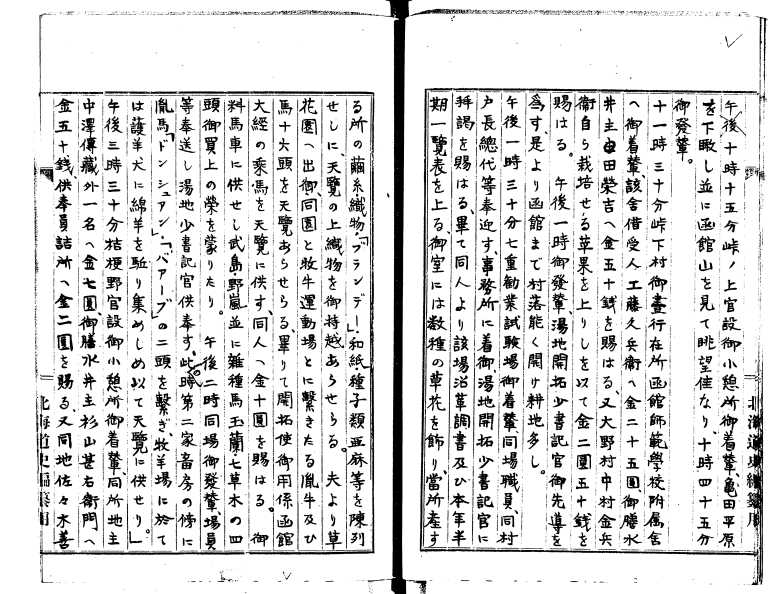 午後十時十五分峠ノ上官設御小憩所御着輦、亀田平原
を下瞰し並に函館山を見て眺望佳なり、十時四十五分
御發輦。
十一時三十分峠下村御晝行在所函館師範學校附属舎
へ御着輦、該舎借受人工藤久兵衞へ金二十五圓、御膳水
井主由田榮吉へ金五十銭を賜はる、又大野村中村金兵
衞自ら栽培せる苹果を上りしを以て金二圓五十銭を
賜はる。午後一時御發輦、湯地開拓少書記官御先導を
為す、是より函館まで村落能く開け耕地多し。
午後一時三十分七重勸業試験場御着輦、同場職員、同村
戸長總代等奉迎す、事務所に着御、湯地開拓少書記官に
拝謁を賜はる、畢て同人より該場沿革調書及ひ本年半
期一覽表を上る、御室には数種の草花を飾り、當所產す
る所の繭糸織物、「ブランデー」、和紙種子類亜麻等を陳列
せしに、天覽の上織物を御持越あらせらる。夫より草
花園へ出御、同園と牧牛運動場とに繫きたる胤牛及ひ
馬十六頭を天覽あらせらる、畢りて開拓使御用係函館
大経の乘馬を天覽に供す、同人へ金十圓を賜はる。御
料馬車に供せし武島、野嵐並に雜種馬玉蘭、七草木の四
頭御買上の榮を蒙りたり。午後二時同場御發輦、場員
等奉送し湯地少書記官供奉す、此時第二家畜房の傍に
胤馬「ドンジュアン」、「バアーブ」の二頭を繫ぎ、牧羊場に於て
は護羊犬に綿羊を駈り集めしめ以て天覽に供せり。」
午後三時三十分桔梗野官設御小憩所御着輦、同所地主
中澤傳藏外一名へ金七圓、御膳水井主杉山甚右衞門へ
金五十銭、供奉員詰所へ金二圓を賜る、又同地佐々木善
北海道史編纂用
北海道史編纂用